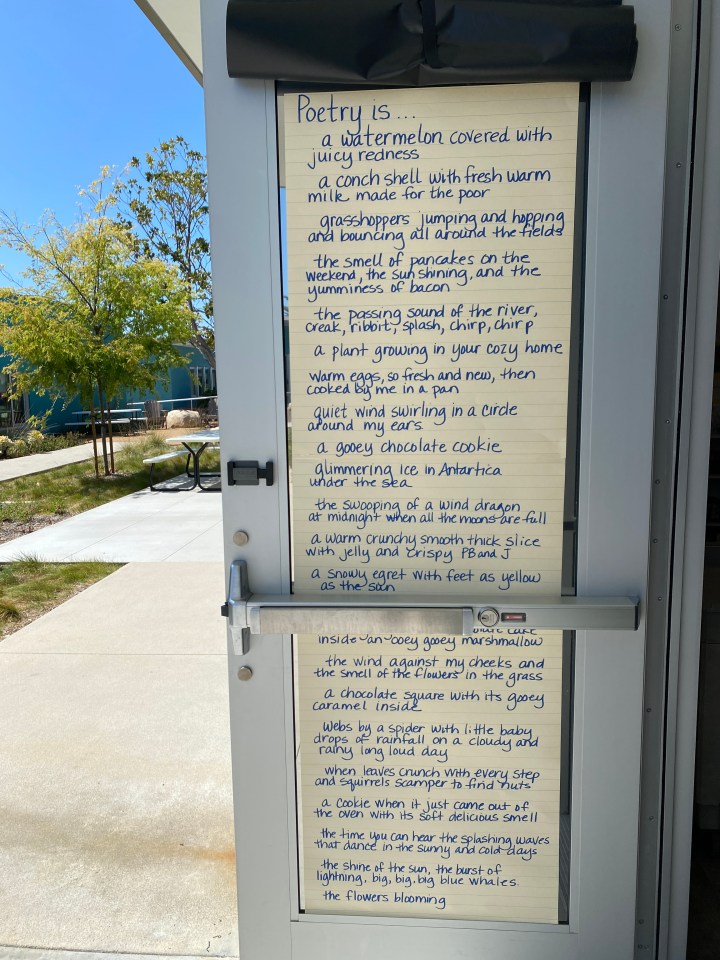 Poetry is...
a watermelon covered with
juicy redness
a conch shell with fresh warm
milk made for the poor
grasshoppers jumping and hopping
and bouncing all around the fields
the smell of pancakes on the
weekend, the sun shining, and the
yumminess of bacon
the passing sound of the river,
creak, ribbit, splash, chirp, chirp
a plant growing in your cozy home
warm eggs, so fresh and new, then
cooked by me in a pan
quiet wind swirling in a circle
around my ears
a gooey chocolate cookie
glimmering ice in Antartica
under the sea
the swooping of a wind dragon
at midnight when all the moons are full
a warm crunchy smooth thick slice
with jelly and crispy PB and J
a snowy egret with feet as yellow
as the sun
cake
inside an ooey gooey marshmallow
the wind against my cheeks and
the smell of the flowers in the grass
a chocolate square with its gooey
caramel inside
webs by a spider with little baby
drops of rainfall on a cloudy and
rainy long loud day
when leaves crunch with every step
and squirrels scamper to find nuts
a cookie when it just came out of
the oven with its soft delicious smell
the time you can hear the splashing waves
that dance in the sunny and cold days
the shine of the sun, the burst of
lightning, big, big, big blue whales.
the flowers blooming